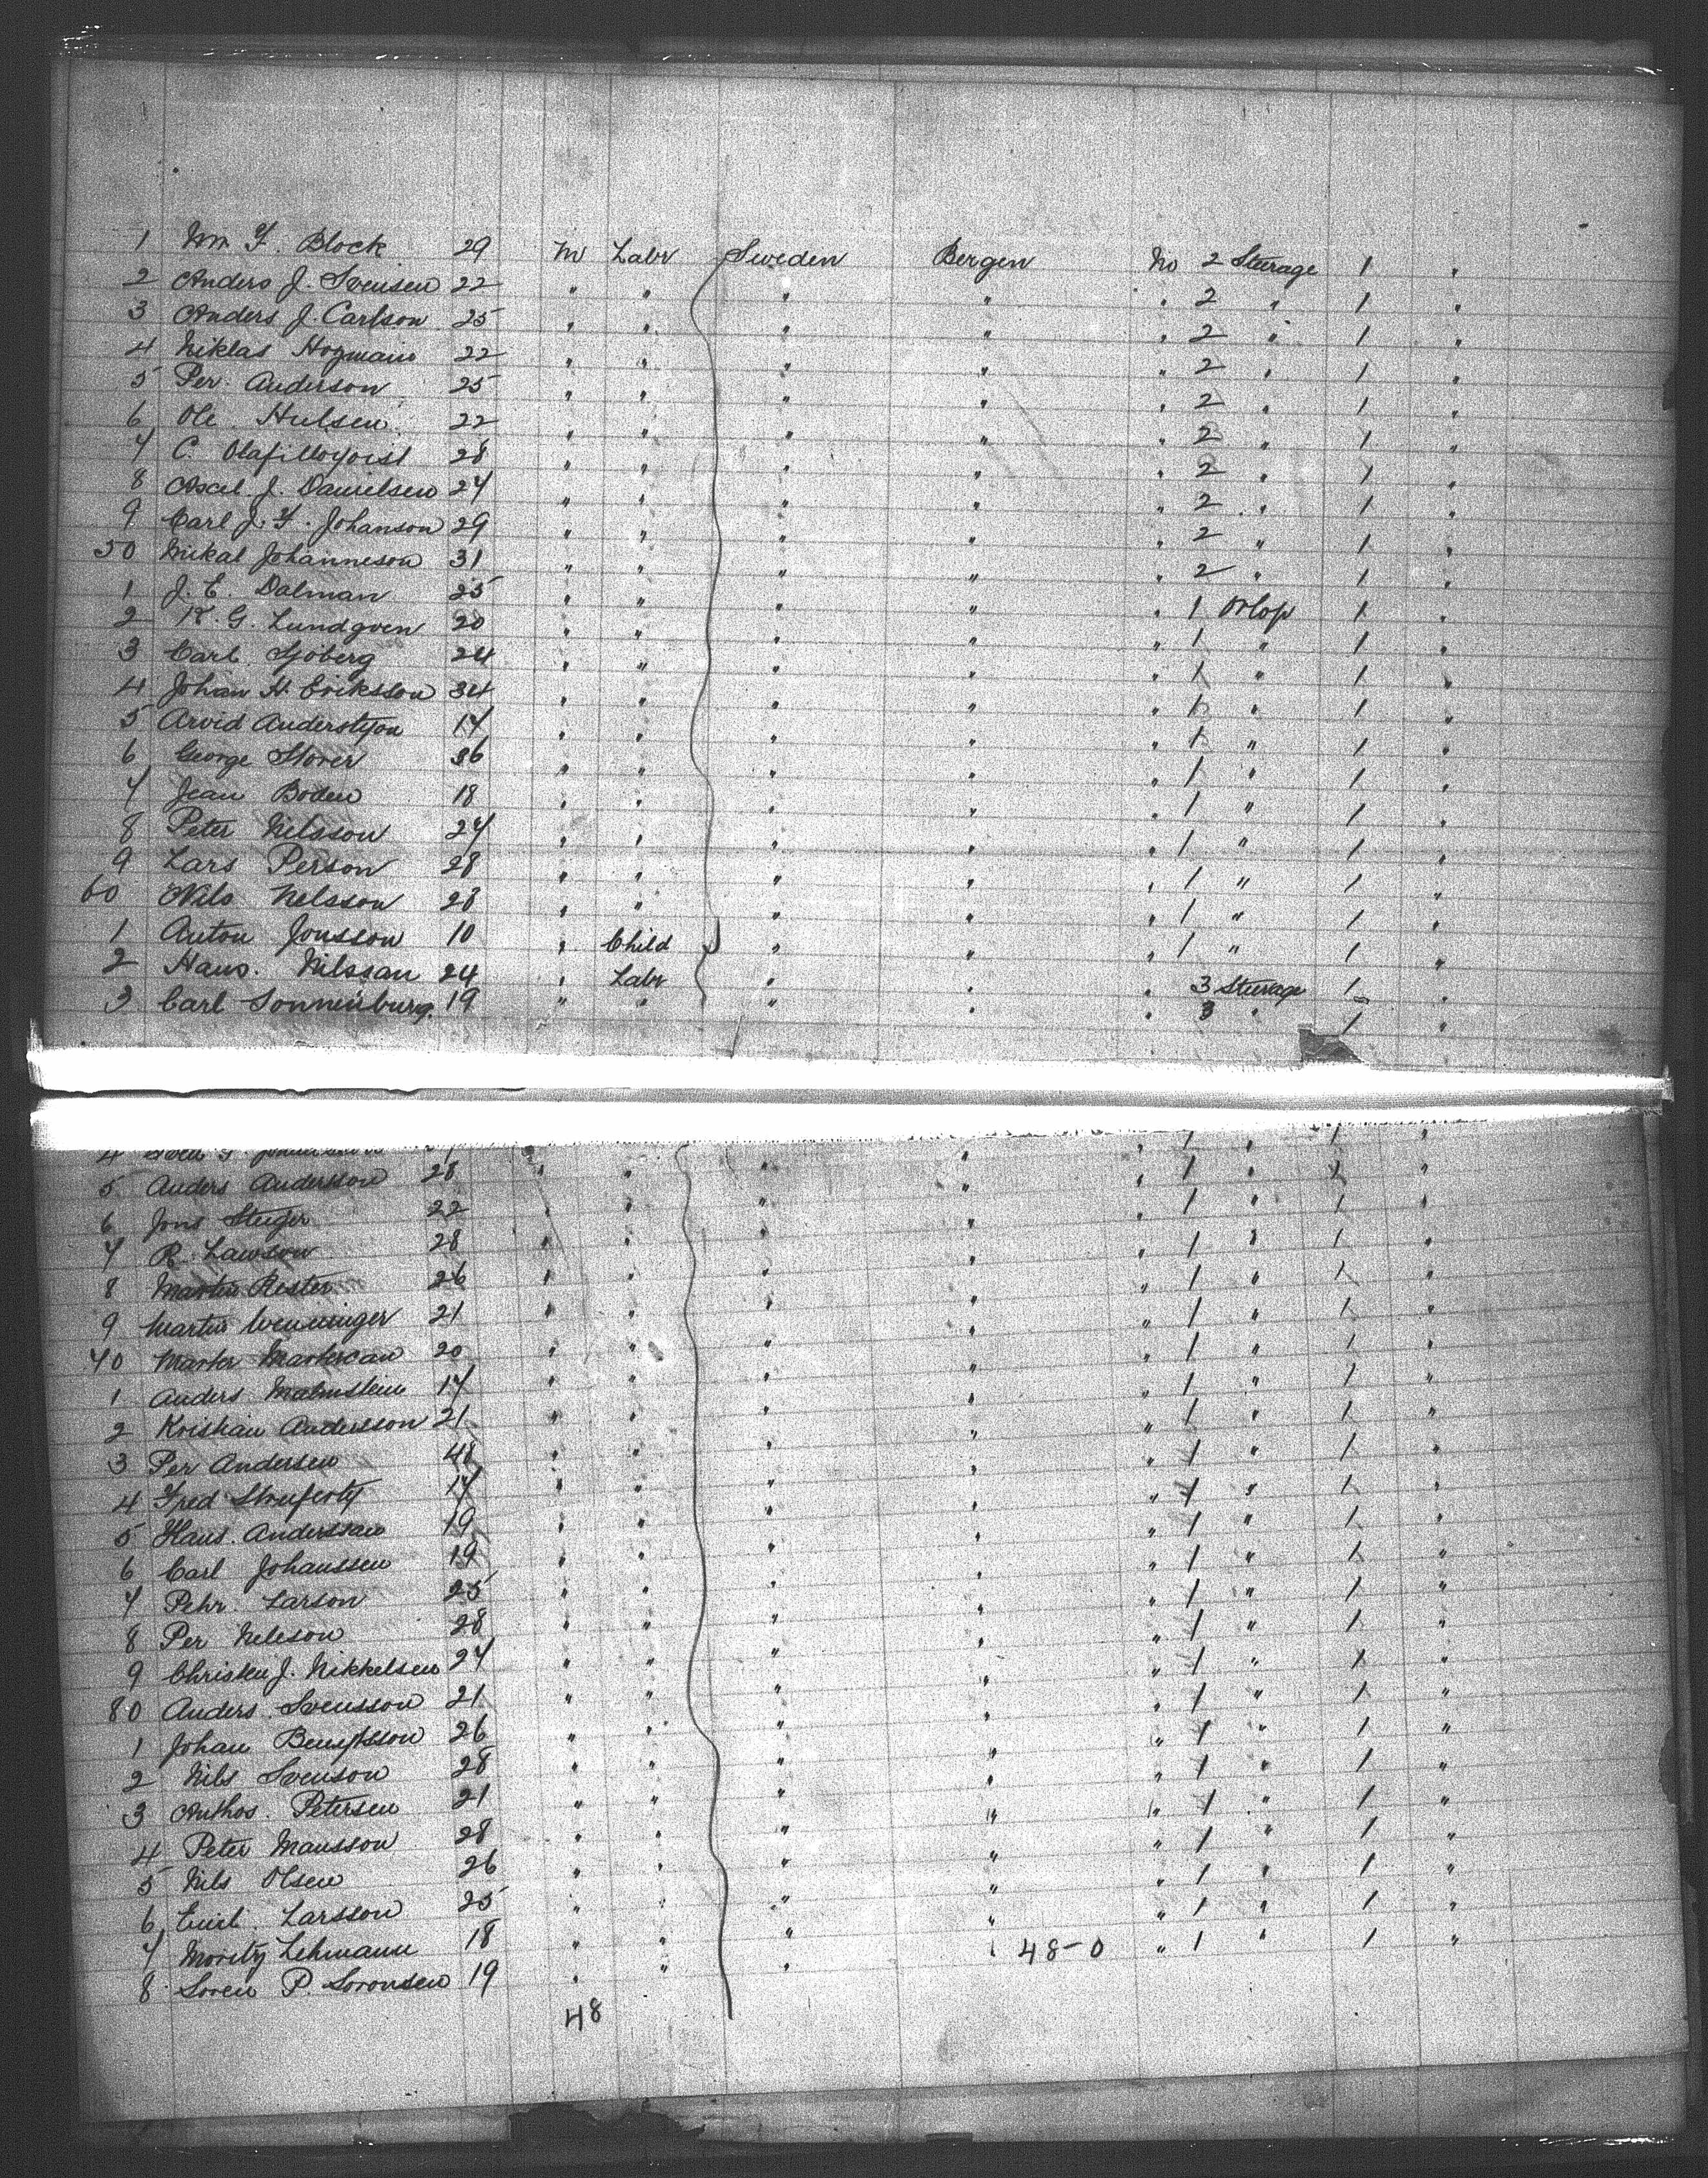 1 Wm F. Block 29 M Labr Sweden Bergen No 2 Sterage 1 "
2 Anders J. Svensen 22 " " " " " 2 " 1 "
3 Anders J. Carlson 25 " " " " " 2 " 1 "
4 Niklas Hogman 22 " " " " " 2 " 1 "
5 Per Anderson 25 " " " " " 2 " 1 "
6 Ole Hulsen 22 " " " " " 2 " 1 "
7 C. 28 " " " " " 2 " 1 "
8 Axel J. Danielsen 27 " " " " " 2 " 1 "
9 Carl J. F. Johanson 29 " " " " " 2 " 1 "
50 Mikal Johanneson 31 " " " " " 2 " 1 "
1 J. E. Dalman 25 " " " " " 1 Orlop 1 "
2 K. G. Lundgven 20 " " " " " 1 " 1 "
3 Carl Sjoberg 24 " " " " " 1 " 1 "
4 Johan H. Eriksson 34 " " " " " 1 " 1 "
5 Arvid 17 " " " " " 1 " 1 "
6 George Storer 36 " " " " " 1 " 1 "
7 Jean Boden 18 " " " " " 1 " 1 "
8 Peter Nilsson 27 " " " " " 1 " 1 "
9 Lars Person 28 " " " " " 1 " 1 "
60 Nils Nelsson 28 " " " " " 1 " 1 "
1 Anton Jonsson 10 " Child " " " 1 " 1 "
2 Hans. Nilssan 24 " Labr " " " 3 Sterage 1 "
3 Carl Sonnenburg. 19 " " " " " 3 " 1 "
4 " 1 " 1 "
5 Anders Andersson 28 " " " " " 1 " 1 "
6 Jons Steiger 22 " " " " " 1 " 1 "
7 R. Lawson 28 " " " " " 1 " 1 "
8 Martin Rester 26 " " " " " 1 " 1 "
9 Martin Wenninger 21 " " " " " 1 " 1 "
70 20 " " " " " 1 " 1 "
1 Anders Malmstein 17 " " " " " 1 " 1 "
2 Kristian Andersson 21 " " " " " 1 " 1 "
3 Per Andersen 48 " " " " " 1 " 1 "
4 Fred 17 " " " " " 1 " 1 "
5 Hans. Anderssan 19 " " " " " 1 " 1 "
6 Carl Johanssen 19 " " " " " 1 " 1 "
7 Pehr. Larson 25 " " " " " 1 " 1 "
8 Per Neleson 28 " " " " " 1 " 1 "
9 Christen J. Nikkelsen 27 " " " " " 1 " 1 "
80 Anders Svensson 21 " " " " " 1 " 1 "
1 Johan Bengtsson 26 " " " " " 1 " 1 "
2 Nils Svenson 28 " " " " " 1 " 1 "
3 Anthos. Petersen 21 " " " " " 1 " 1 "
4 Peter Mansson 28 " " " " " 1 " 1 "
5 Nils Olsen 26 " " " " " 1 " 1 "
6 Emil. Larsson 25 " " " " " 1 " 1 "
7 Moritz Lehmann 18 " " " " " 1 " 1 "
8 Soren P. Soronsen 19 " " " " 48-0
48